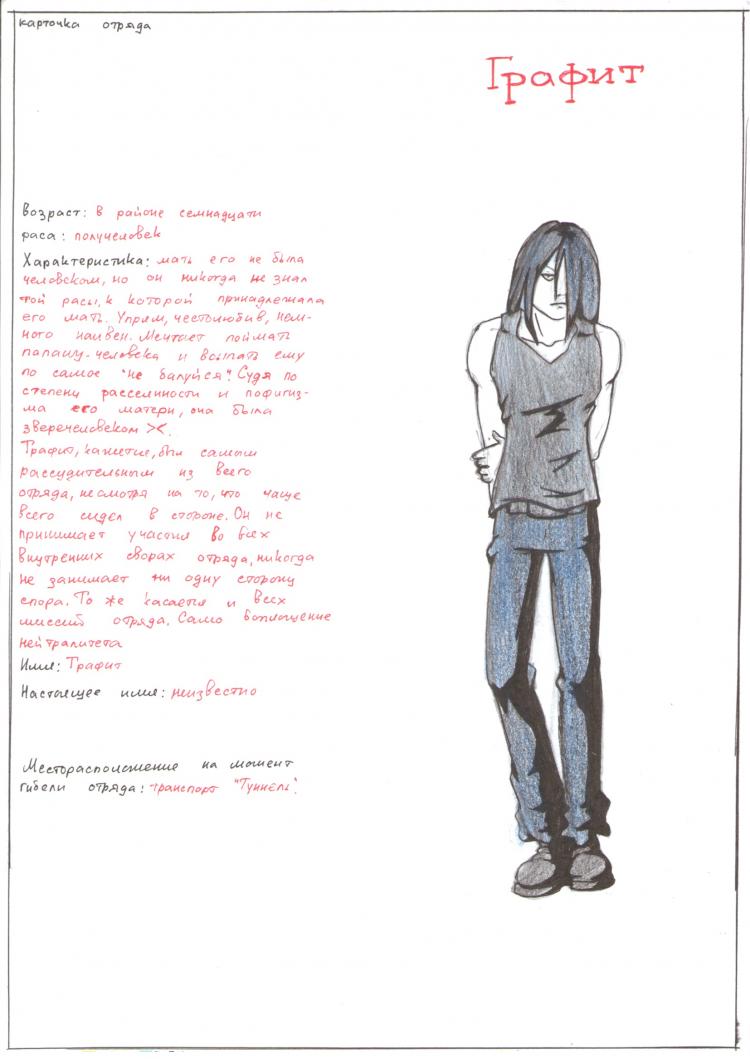 карточка отряда
Графит
возраст: в районе семнадцати
раса: получеловек
Характеристика: мать его не была
человеком, но он никогда не знал
той расы, к которой принадлежала
его мать. Упрям, честолюбив, нем-
ного наивен. Мечтает поймать
папашу-человека и всыпать ему
по самое "не балуйся". Судя по
степени рассеянности и пофигиз-
ма его матери, она была
зверечеловеком ><.
Графит, кажется, был самым
рассудительным из всего
отряда, несмотря на то, что чаще
всего сидел в стороне. Он не
принимает участия во всех
внутренних сворах отряда, никогда
не занимает ни одну сторону
спора. То же касается и всех
миссий отряда. Само воплощение
нейтралитета
Имя: Графит
Настоящее имя: неизвестно
Месторасположение на момент
гибели отряда: транспорт "Туннель".